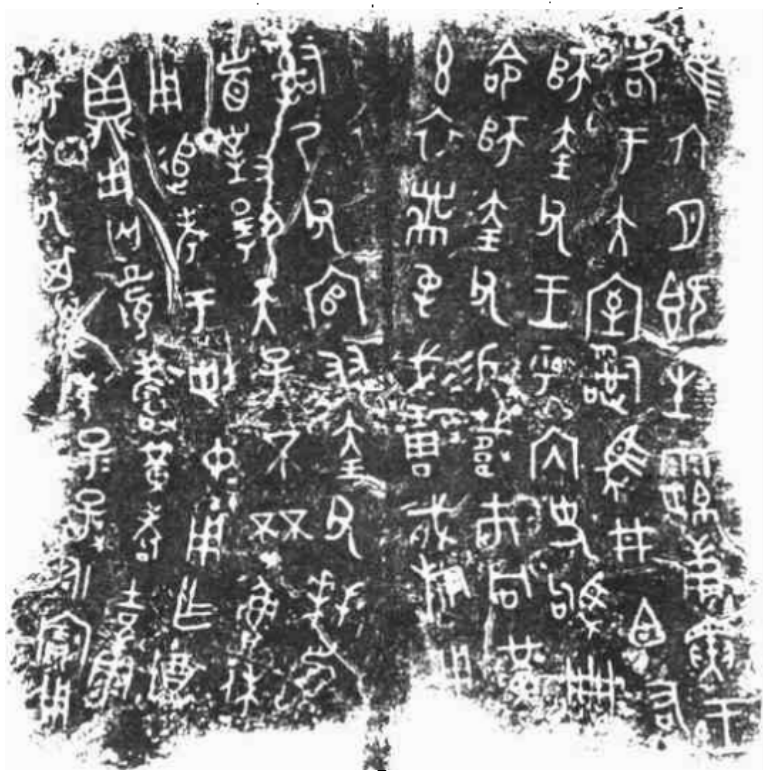 隹六月既生霸庚寅王
各于大室𤔲馬井白右
師𡘇父王乎內史駒冊
命師𡘇父易𩎟巿冋黃
玄衣黹屯戈琱㦸旂用
𤔲乃父官友𡘇父拜𩒨
首對揚天子不㔻魯休
用追考于剌中用乍尊
鼎用匄眉壽黃耇吉康
師𡘇父其萬年子子孫孫永寶用